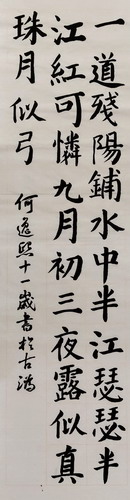 一道殘陽鋪水中半江瑟瑟半
江紅可憐九月初三夜露似真
珠月似弓
何逸熙十一歲書於古鴻